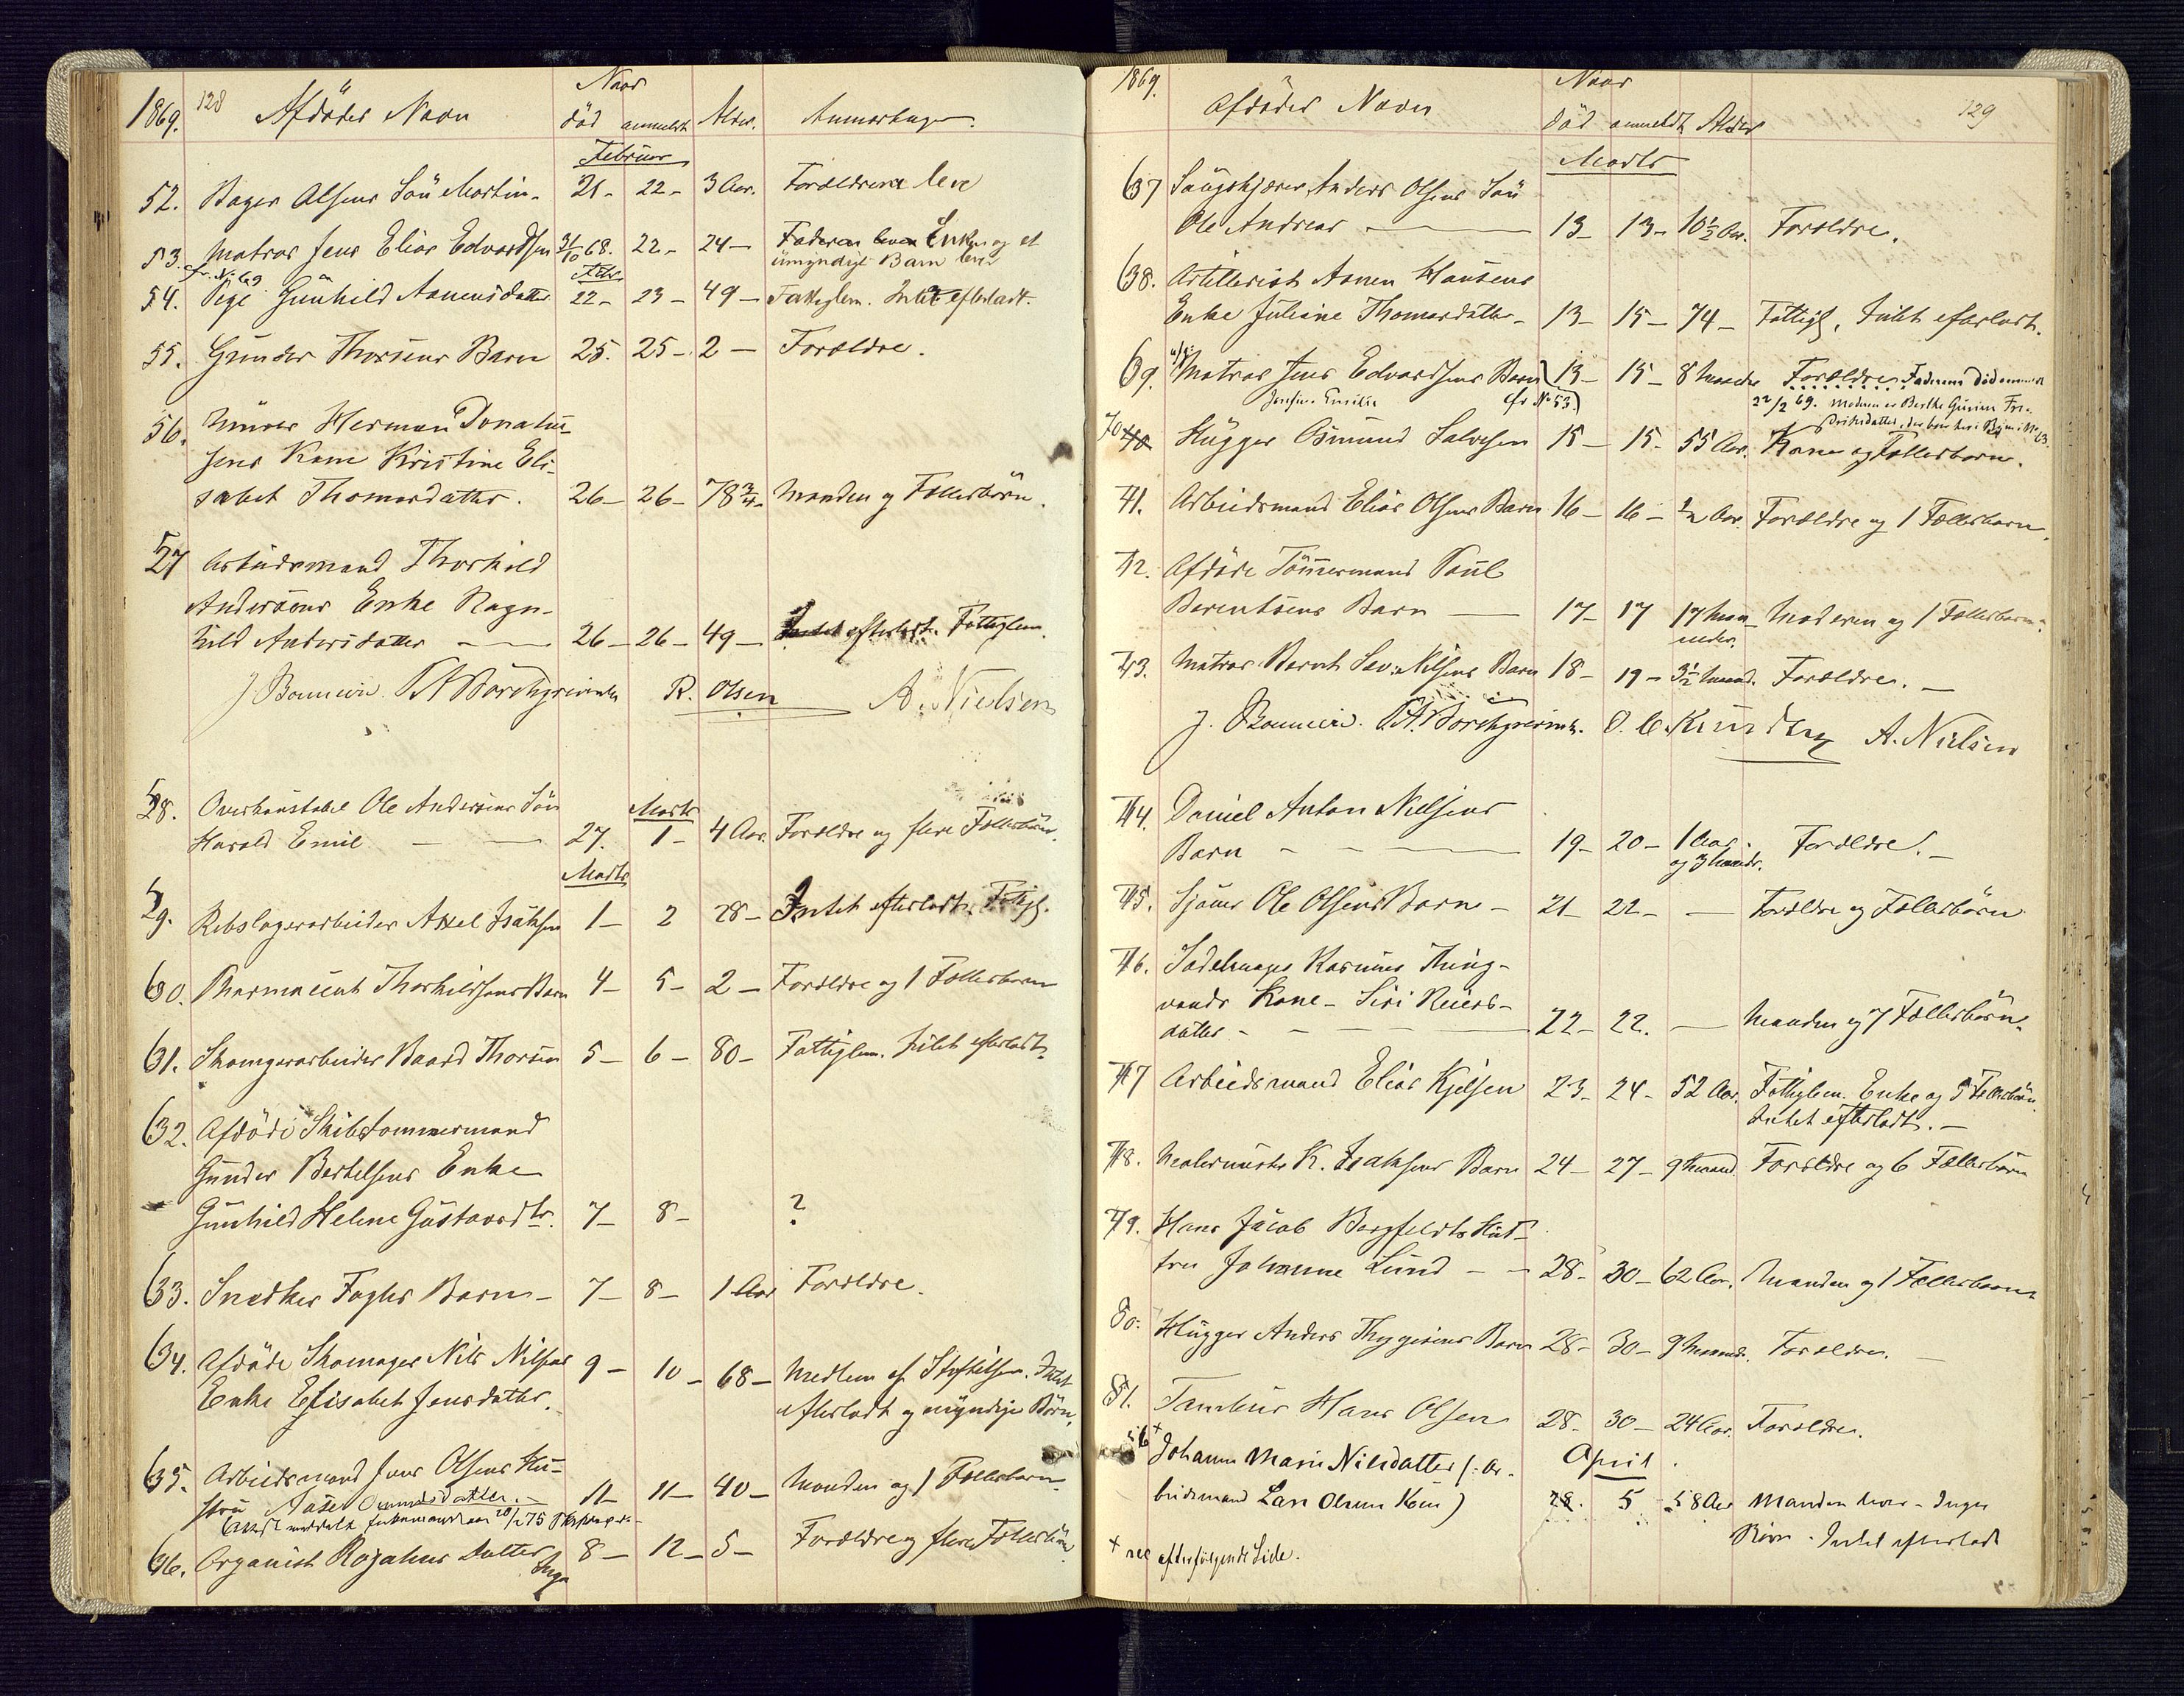 1869. 128 Afdödes Navn Naar död anmeldt Alder. Anmærkninger.
Februar
52. Bager Olsens Sön Martin - 21 - 22 - 3 Aar. Forældrene leve
53. Matros Jens Elias Edvardsen 31/10 68. 22 - 24 - Faderen Enken og et
cfr. No 69 umyndigt Barn lever
Febr
54. Pige Gunhild Aanensdatter 22 - 23 - 49 - Fattiglem. Intet efterladt.
55. Gunder Thorsens Barn 25. 25 - 2 - Forældre.
56. Murer Herman Donatus-
sens Kone Kristine Eli-
sabet Thomasdatter. 26 - 26 - 78 3/4 - Manden og Fællesbörn.
57 Arbeidsmand Thorkild
Andersens Enke Ragn-
hild Andersdatter - 26 - 26 - 49 - Intet efterladt. Fattiglem.
J Bonnevie. Borchgrevink R. Olsen A. Nielsen
58. Overkonstabel Ole Andersens Sön Marts
Harald Emil - - 27. 1 - 4 Aar. Forældre og flere Fællesbörn.
Marts
59. Rebslagerarbeider Axel Isaksen 1 - 2 28 - Intet efterladt. Fattigl.
60. Pharmaceut Thorkildsens Barn 4 - 5 - 2 - Forældre og 1 Fællesbarn
61. Skomagerarbeider Baard Thorsen 5 - 6 - 80 - Fattiglem. Intet efterladt.
62. Afdöde Skibstømmermand
Gunder Bertelsens Enke
Gunhild Helene Gustavsdtr. 7 - 8 - ?
63. Snedker Foglers Barn - 7 - 8 - 1 Aar Forældre.
64. Afdöde Skomager Nils Nilsens 9 - 10 - 68 - Medlem af Stiftelsen. Intet
Enke Elisabet Jensdatter. efterladt og myndige Börn.
65. Arbeidsmand Jens Olsens Hu-
stru Aase Omundsdatter. - 11 - 11 - 40 - Manden og 1 Fællesbarn
66. Organist Rojahns Datter Inga 8 - 12 - 5 - Forældre og flere Fællesbörn
1869. Afdödes Navn Naar död anmeldt Alder 129
Marts
67 Saugskjærer Anders Olsens Sön
Ole Andreas - 13 - 13 - 10 1/2 Aar. Forældre.
68. Artillerist Aanen Hansens
Enke Juliane Thomasdatter - 13 - 15 - 74 - Fattigl. Intet efterladt.
69. Matros Jens Edvardsens Barn 13 - 15 - 8 Maaneder Forældre. Faderens död anmeldt
(cfr No 53.) 22/2 69. Moderen er Berthe Gurine Fre-
driksdatter, der
70 Hugger Osmund Salvesen 15 - 15 - 55 Aar. Kone og Fællesbarn.
71. Arbeidsmand Elias Olsens Barn 16 - 16 - 1/2 Aar. Forældre og 1 Fællesbarn.
72. Afdöde Tömmermand Paul
Berentsens Barn - 17 - 17 17 Maa- Moderen og 1 Fællesbarn.
neder.
73. Matros Bernt Sev. Nilsens Barn 18 - 19 - 3 1/2 Maand. Forældre. -
J. Bonnevie. Borchgrevink. A. Nielsen
74. Daniel Anton Nielsens
Barn - - - 19 - 20 - 1 Aar. Forældre. -
og 3 Maandr.
75. Sjömd Ole Olsens Barn - 21 - 22 - - Forældre og Fællesbörn
76. Sadelmager Rasmus Thing-
vands Kone - Siri Reiers-
datter - - - 22 - 22. - Manden og 7 Fællesbörn.
77 Arbeidsmand Elias Kjelsen 23 - 24 - 52 Aar. Fattiglem. Enke og 5 Fællesbörn.
Intet efterladt. -
78. Malermester K. Isaksens Barn 24 - 27 - 9 Maand. Forældre og 6 Fællesbörn
79. Hans Jacob Bergfeldts Hus-
tru Johanne Lund - - 28 - 30 - 62 Aar. Manden og 1 Fællesbarn
80. Hugger Anders Thygesens Barn 28 - 30 - 9 Maandr. Forældre. -
81. Tambur Hans Olsen 28 - 30 - 24 Aar. Forældre.
+ Johanne Marie Nilsdatter (: Ar- April.
beidsmand Lars Olsens Kone) 28. 5 - 58 Aar Manden lever - Ingen
Börn - Intet efterladt
+ see efterfölgende Side.